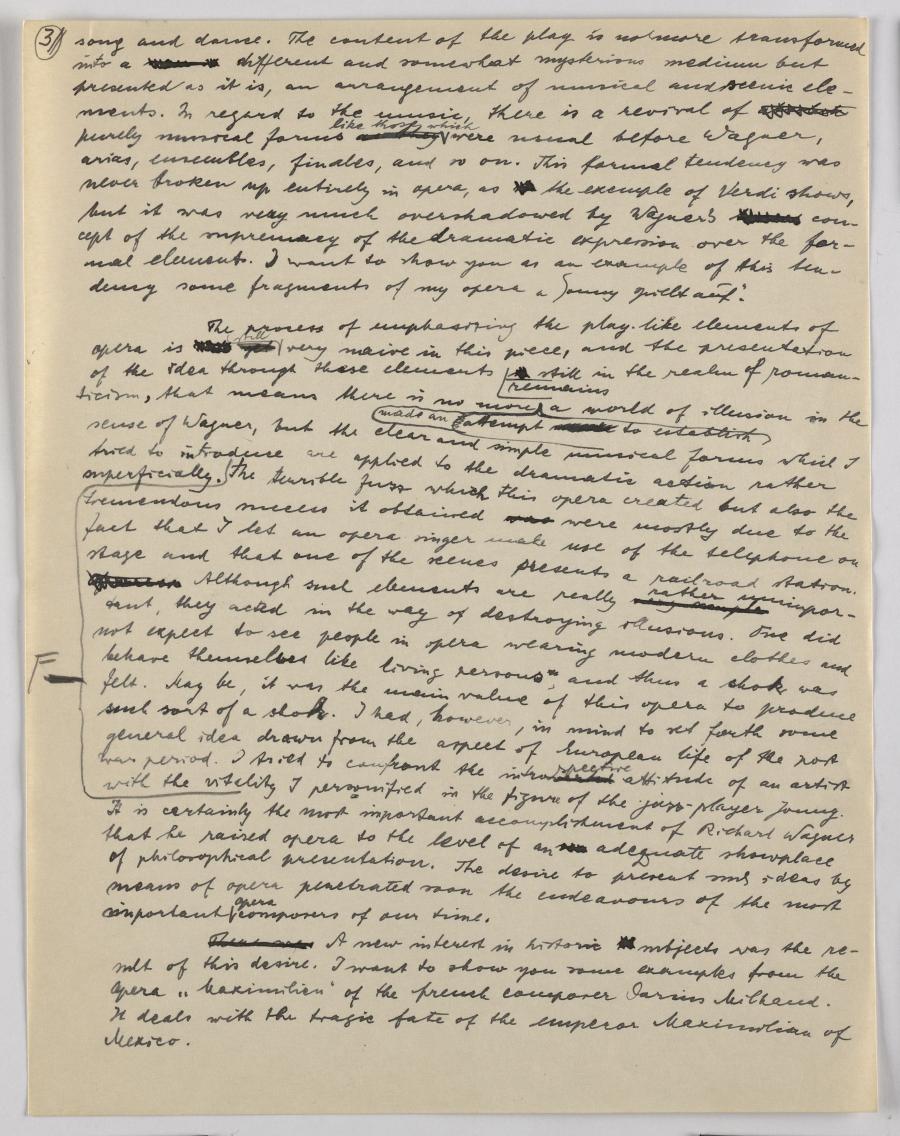 3)
song and dance. The content of the play is no more transformed
into a different and somewhat mysterious medium but
presented as it is, an arrangement of musical and scenic ele-
ments. In regard to the music, there is a revival of
purely musical forms like those which were usual before Wagner,
arias, ensembles, finales, and so on. This formal tendency was
never broken up entirely in opera, as the exemple of Verdi shows,
but it was very much overshadowed by Wagner's con-
cept of the supremacy of the dramatic expression over the for-
mal elements. I want to show you as an example of this ten-
dency some fragments of my opera "Jonny spielt auf".
The process of emphasizing the play-like elements of
opera is still very naive in this piece, and the presentation
of the idea through these elements remains still in the realm of roman-
ticism, that means there is no more a world of illusion in the
sense of Wagner, but the made an attempt to establish
clear and simple musical forms which I
tried to introduce are applied to the dramatic action rather
superficially. The terrible fuzz which this opera created but also the
tremendous success it obtained were mostly due to the
fact that I let an opera singer make use of the telephone on
stage and that one of the scenes presents a railroad station.
Although such elements are really rather unimpor-
tant, they acted in the way of destroying illusions. One did
not expect to see people in opera wearing modern clothes and
behave themselves like living persons, and thus a shok was
felt. May be, it was the main value of this opera to produce
such sort of a shok. I had, however, in mind to set forth some
general idea drawn from the aspect of European life of the post
war period. I tried to confront the introspective attitude of an artist
with the vitality I personified in the figure of the jazz-player Jonny.
It is certainly the most important accomplishment of Richard Wagner
that he raised opera to the level of an adequate showplace
of philosophical presentation. The desire to present such ideas by
means of opera penetrated soon the endeavours of the most
important opera composers of our time.
A new interest in historic subjects was the re-
sult of this desire. I want to show you some examples from the
opera „Maximilien" of the french composer Darius Milhaud.
It deals with the tragic fate of the emperor Maximilian of
Mexico.